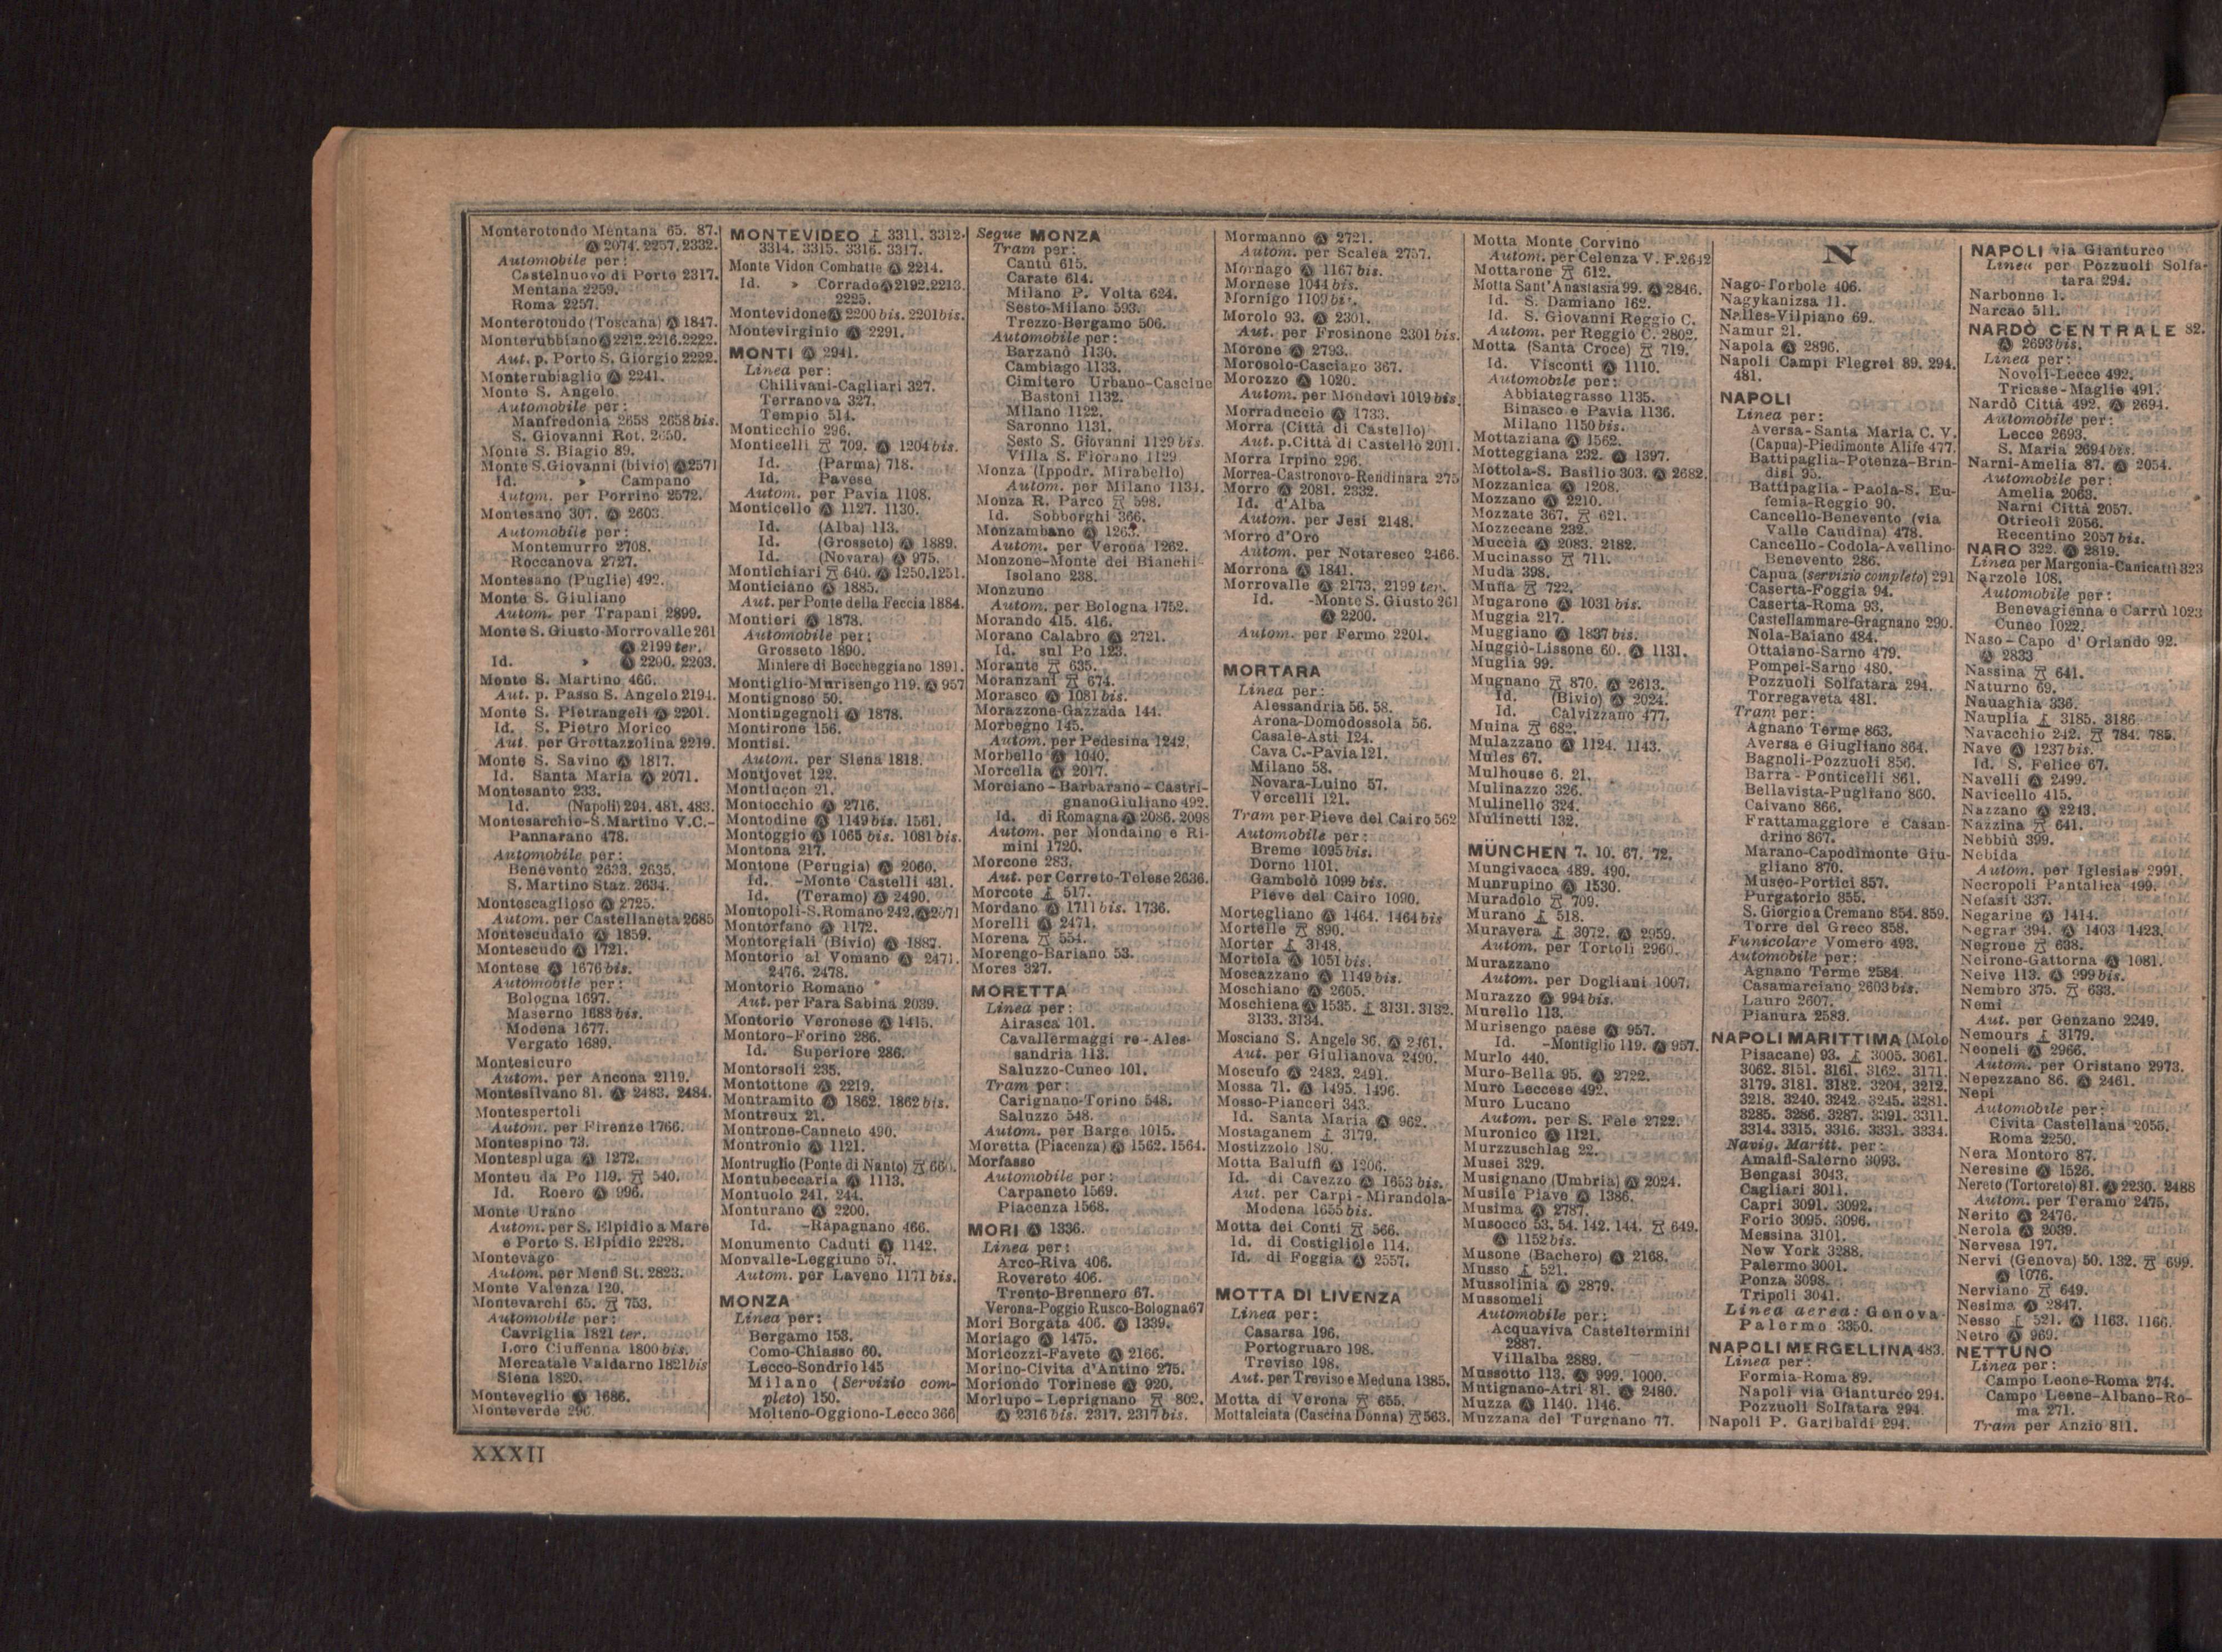 Monterotondo Mentana 65. 87.
Ⓐ 2074. 2257. 2332.
Automobile per:
Castelnuovo di Porto 2317.
Mentana 2259.
Roma 2257.
Monterotondo (Toscana) Ⓐ 1847.
Monterubbiano Ⓐ 2212. 2216. 2222.
Aut. p. Porto S. Giorgio 2222.
Monterubiaglio Ⓐ 2241.
Monte S. Angelo.
Automobile per:
Manfredonia 2658 2658 bis.
S. Giovanni Rot. 2650.
Monte S. Biagio 89.
Monte S. Giovanni (bivio) Ⓐ 2571
Id. » Campano
Autom. per Porrino 2572.
Montesano 307. Ⓐ 2603.
Automobile per:
Montemurro 2708.
Roccanova 2727.
Montesano (Puglie) 492.
Monte S. Giuliano
Autom. per Trapani 2899.
Monte S. Giusto-Morrovalle 261
Ⓐ 2199 ter.
Id. » Ⓐ 2200. 2203.
Monte S. Martino 466.
Aut. p. Passo S. Angelo 2194.
Monte S. Pietrangeli Ⓐ 2201.
Id. S. Pietro Morico
Aut. per Grottazzolina 2219.
Monte S. Savino Ⓐ 1817.
Id. Santa Maria Ⓐ 2071.
Montesanto 233.
Id. (Napoli) 294. 481. 483.
Montesarchio-S. Martino V.C.-
Pannarano 478.
Automobile per:
Benevento 2633. 2635.
S. Martino Staz. 2634.
Montescaglioso Ⓐ 2725.
Autom. per Castellaneta 2685
Montescudaio Ⓐ 1859.
Montescudo Ⓐ 1721.
Montese Ⓐ 1676 bis.
Automobile per:
Bologna 1697.
Maserno 1688 bis.
Modena 1677.
Vergato 1689.
Montesicuro
Autom. per Ancona 2119.
Montesilvano 81. Ⓐ 2483. 2484.
Montespertoli
Autom. per Firenze 1766.
Montespino 73.
Montespluga Ⓐ 1272.
Monteu da Po 119. 540.
Id. Roero Ⓐ 996.
Monte Urano
Autom. per S. Elpidio a Mare
e Porto S. Elpidio 2228.
Montevago
Autom. per Menfi St. 2823.
Monte Valenza 120.
Montevarchi 65. 753.
Automobile per:
Cavriglia 1821 ter.
Loro Ciuffenna 1800 bis.
Mercatale Valdarno 1821 bis
Siena 1820.
Monteveglio Ⓐ 1686.
Monteverde 296.
MONTEVIDEO 3311. 3312.
3314. 3315. 3316. 3317.
Monte Vidon Combatte Ⓐ 2214.
Id. » Corrado Ⓐ 2192. 2213.
2225.
Montevidone Ⓐ 2200 bis. 2201 bis.
Montevirginio Ⓐ 2291.
MONTI Ⓐ 2941.
Linea per:
Chilivani-Cagliari 327.
Terranova 327.
Tempio 514.
Monticchio 296.
Monticelli 709. Ⓐ 1204 bis.
Id. (Parma) 718.
Id. Pavese
Autom. per Pavia 1108.
Monticello Ⓐ 1127. 1130.
Id. (Alba) 113.
Id. (Grosseto) Ⓐ 1889.
Id. (Novara) Ⓐ 975.
Montichiari 640. Ⓐ 1250. 1251.
Monticiano Ⓐ 1885.
Aut. per Ponte della Feccia 1884.
Montieri Ⓐ 1878.
Automobile per:
Grosseto 1890.
Miniere di Boccheggiano 1891.
Montiglio-Murisengo 119. Ⓐ 957
Montignoso 50.
Montingegnoli Ⓐ 1878.
Montirone 156.
Montisi.
Autom. per Siena 1818.
Montjovet 122.
Montluçon 21.
Montocchio Ⓐ 2716.
Montodine Ⓐ 1149 bis. 1561.
Montoggio Ⓐ 1065 bis. 1081 bis.
Montona 217.
Montone (Perugia) Ⓐ 2060.
Id. -Monte Castelli 431.
Id. (Teramo) Ⓐ 2490.
Montopoli-S. Romano 242. Ⓐ 2071
Montorfano Ⓐ 1172.
Montorgiali (Bivio) Ⓐ 1887.
Montorio al Vomano Ⓐ 2471.
2476. 2478.
Montorio Romano
Aut. per Fara Sabina 2039.
Montorio Veronese Ⓐ 1415.
Montoro-Forino 286.
Id. Superiore 286.
Montorsoli 235.
Montottone Ⓐ 2219.
Montramito Ⓐ 1862. 1862 bis.
Montreux 21.
Montrone-Canneto 490.
Montronio Ⓐ 1121.
Montruglio (Ponte di Nanto)
Montubeccaria Ⓐ 1113.
Montuolo 241. 244.
Monturano Ⓐ 2200.
Id. -Rapagnano 466.
Monumento Caduti Ⓐ 1142.
Monvalle-Leggiuno 57.
Autom. per Laveno 1171 bis.
MONZA
Linea per:
Bergamo 153.
Como-Chiasso 60.
Lecco-Sondrio 145
Milano (Servizio com-
pleto) 150.
Molteno-Oggiono-Lecco 366
Segue MONZA
Tram per:
Cantù 615.
Carate 614.
Milano P. Volta 624.
Sesto-Milano 593.
Trezzo-Bergamo 506.
Automobile per:
Barzanò 1130.
Cambiago 1133.
Cimitero Urbano-Cascine
Bastoni 1132.
Milano 1122.
Saronno 1131.
Sesto S. Giovanni 1129 bis.
Villa S. Fiorano 1129
Monza (Ippodr. Mirabello)
Autom. per Milano 1134.
Monza R. Parco 598.
Id. Sobborghi 366.
Monzambano Ⓐ 1263.
Autom. per Verona 1262.
Monzone-Monte dei Bianchi-
Isolano 238.
Monzuno
Autom. per Bologna 1752.
Morando 415. 416.
Morano Calabro Ⓐ 2721.
Id. sul Po 123.
Morante 635.
Moranzani 674.
Morasco Ⓐ 1081 bis.
Morazzone-Gazzada 144.
Morbegno 145.
Autom. per Pedesina 1242.
Morbello Ⓐ 1040.
Morcella Ⓐ 2017.
Morciano-Barbarano-Castri-
gnano Giuliano 492.
Id. di Romagna Ⓐ 2086. 2098
Autom. per Mondaino e Ri-
mini 1720.
Morcone 283.
Aut. per Cerreto-Telese 2636.
Morcote 517.
Mordano Ⓐ 1711 bis. 1736.
Morelli Ⓐ 2471.
Morena 554.
Morengo-Bariano 53.
Mores 327.
MORETTA
Linea per:
Airasca 101.
Cavallermaggi re-Ales-
sandria 113.
Saluzzo-Cuneo 101.
Tram per:
Carignano-Torino 548.
Saluzzo 548.
Autom. per Barge 1015.
Moretta (Piacenza) Ⓐ 1562. 1564.
Morfasso
Automobile per:
Carpaneto 1569.
Piacenza 1568.
MORI Ⓐ 1336.
Linea per:
Arco-Riva 406.
Rovereto 406.
Trento-Brennero 67.
Verona-Poggio Rusco-Bologna 67
Mori Borgata 406. Ⓐ 1339.
Moriago Ⓐ 1475.
Moricozzi-Favete Ⓐ 2166.
Morino-Civita d'Antino 275.
Moriondo Torinese Ⓐ 920.
Morlupo-Leprignano 802.
Ⓐ 2316 bis. 2317. 2317 bis.
Mormanno Ⓐ 2721.
Autom. per Scalea 2757.
Mornago Ⓐ 1167 bis.
Mornese 1044 bis.
Mornigo 1109 bis.
Morolo 93. Ⓐ 2301.
Aut. per Frosinone 2301 bis.
Morone Ⓐ 2793.
Morosolo-Casciago 367.
Morozzo Ⓐ 1020.
Autom. per Mondovì 1019 bis.
Morraduccio Ⓐ 1733.
Morra (Città di Castello)
Aut. p. Città di Castello 2011.
Morra Irpino 296.
Morrea-Castronovo-Rendinara 275
Morro Ⓐ 2081. 2332.
Id. d'Alba
Autom. per Jesi 2148.
Morro d'Oro
Autom. per Notaresco 2466.
Morrona Ⓐ 1841.
Morrovalle Ⓐ 2173. 2199 ter.
Id. -Monte S. Giusto 261
Ⓐ 2200.
Autom. per Fermo 2201.
MORTARA
Linea per:
Alessandria 56. 58.
Arona-Domodossola 56.
Casale-Asti 124.
Cava C.-Pavia 121.
Milano 58.
Novara-Luino 57.
Vercelli 121.
Tram per Pieve del Cairo 562
Automobile per:
Breme 1095 bis.
Dorno 1101.
Gambolò 1099 bis.
Pieve del Cairo 1090.
Mortegliano Ⓐ 1464. 1464 bis
Mortelle 890.
Morter 3148.
Mortola Ⓐ 1051 bis.
Moscazzano Ⓐ 1149 bis.
Moschiano Ⓐ 2605.
Moschiena Ⓐ 1535. 3131. 3132.
3133. 3134.
Mosciano S. Angelo 86. Ⓐ 2461.
Aut. per Giulianova 2490.
Moscufo Ⓐ 2483. 2491.
Mossa 71. Ⓐ 1495. 1496.
Mosso-Pianceri 343.
Id. Santa Maria Ⓐ 962.
Mostaganem 3179.
Mostizzolo 180.
Motta Baluffi Ⓐ 1206.
Id. di Cavezzo Ⓐ 1653 bis.
Aut. per Carpi-Mirandola-
Modena 1655 bis.
Motta dei Conti 566.
Id. di Costigliole 114.
Id. di Foggia Ⓐ 2557.
MOTTA DI LIVENZA
Linea per:
Casarsa 196.
Portogruaro 198.
Treviso 198.
Aut. per Treviso e Meduna 1385.
Motta di Verona 655.
Mottalciata (Cascina Donna) 563.
Motta Monte Corvino
Autom. per Celenza V. F. 2642
Mottarone 612.
Motta Sant'Anastasia 99. Ⓐ 2846.
Id. S. Damiano 162.
Id. S. Giovanni Reggio C.
Autom. per Reggio C. 2802.
Motta (Santa Croce) 719.
Id. Visconti Ⓐ 1110.
Automobile per:
Abbiategrasso 1135.
Binasco e Pavia 1136.
Milano 1150 bis.
Mottaziana Ⓐ 1562.
Motteggiana 232. Ⓐ 1397.
Mottola-S. Basilio 303. Ⓐ 2682.
Mozzanica Ⓐ 1208.
Mozzano Ⓐ 2210.
Mozzate 367. 621.
Mozzecane 232.
Muccia Ⓐ 2083. 2182.
Mucinasso 711.
Muda 398.
Muffa 722.
Mugarone Ⓐ 1031 bis.
Muggia 217.
Muggiano Ⓐ 1837 bis.
Muggiò-Lissone 60. Ⓐ 1131.
Muglia 99.
Mugnano 870. Ⓐ 2613.
Id. (Bivio) Ⓐ 2024.
Id. Calvizzano 477.
Muina 682.
Mulazzano Ⓐ 1124. 1143.
Mules 67.
Mulhouse 6. 21.
Mulinazzo 326.
Mulinello 324.
Mulinetti 132.
MÜNCHEN 7. 10. 67. 72.
Mungivacca 489. 490.
Munrupino Ⓐ 1530.
Muradolo 709.
Murano 518.
Muravera 3072. Ⓐ 2959.
Autom. per Tortolì 2960.
Murazzano
Autom. per Dogliani 1007.
Murazzo Ⓐ 994 bis.
Murello 113.
Murisengo paese Ⓐ 957.
Id. -Montiglio 119. Ⓐ 957.
Murlo 440.
Muro-Bella 95. Ⓐ 2722.
Muro Leccese 492.
Muro Lucano
Autom. per S. Fele 2722.
Muronico Ⓐ 1121.
Murzzuschlag 22.
Musei 329.
Musignano (Umbria) Ⓐ 2024.
Musile Piave Ⓐ 1386.
Musima Ⓐ 2787.
Musocco 53. 54. 142. 144. 649.
Ⓐ 1152 bis.
Musone (Bachero) Ⓐ 2168.
Musso 521.
Mussolinia Ⓐ 2879.
Mussomeli
Automobile per:
Acquaviva Casteltermini
2887.
Villalba 2889.
Mussotto 113. Ⓐ 999. 1000.
Mutignano-Atri 81. Ⓐ 2480.
Muzza Ⓐ 1140. 1146.
Muzzana del Turgnano 77.
N
Nago-Torbole 406.
Nagykanizsa 11.
Nalles-Vilpiano 69.
Namur 21.
Napola Ⓐ 2896.
Napoli Campi Flegrei 89. 294.
481.
NAPOLI
Linea per:
Aversa-Santa Maria C. V.
(Capua)-Piedimonte Alife 477.
Battipaglia-Potenza-Brin-
disi 95.
Battipaglia-Paola-S. Eu-
femia-Reggio 90.
Cancello-Benevento (via
Valle Caudina) 478.
Cancello-Codola-Avellino-
Benevento 286.
Capua (servizio completo) 291
Caserta-Foggia 94.
Caserta-Roma 93.
Castellammare-Gragnano 290.
Nola-Baiano 484.
Ottaiano-Sarno 479.
Pompei-Sarno 480.
Pozzuoli Solfatara 294.
Torregaveta 481.
Tram per:
Agnano Terme 863.
Aversa e Giugliano 864.
Bagnoli-Pozzuoli 856.
Barra-Ponticelli 861.
Bellavista-Pugliano 860.
Caivano 866.
Frattamaggiore e Casan-
drino 867.
Marano-Capodimonte Giu-
gliano 870.
Museo-Portici 857.
Purgatorio 855.
S. Giorgio a Cremano 854. 859.
Torre del Greco 858.
Funicolare Vomero 493.
Automobile per:
Agnano Terme 2584.
Casamarciano 2603 bis.
Lauro 2607.
Pianura 2583.
NAPOLI MARITTIMA (Molo
Pisacane) 93. 3005. 3061.
3062. 3151. 3161. 3162. 3171.
3179. 3181. 3182. 3204. 3212.
3218. 3240. 3242. 3245. 3281.
3285. 3286. 3287. 3391. 3311.
3314. 3315. 3316. 3331. 3334.
Navig. Maritt. per:
Amalfi-Salerno 3093.
Bengasi 3043.
Cagliari 3011.
Capri 3091. 3092.
Forio 3095. 3096.
Messina 3101.
New York 3288.
Palermo 3001.
Ponza 3098.
Tripoli 3041.
Linea aerea: Genova-
Palermo 3350.
NAPOLI MERGELLINA 483.
Linea per:
Formia-Roma 89.
Napoli via Gianturco 294.
Pozzuoli Solfatara 294.
Napoli P. Garibaldi 294.
NAPOLI via Gianturco
Linea per Pozzuoli Solfa-
tara 294.
Narbonne 1.
Narcao 511.
NARDÒ CENTRALE 82.
Ⓐ 2693 bis.
Linea per:
Novoli-Lecce 492.
Tricase-Maglie 491.
Nardò Città 492. Ⓐ 2694.
Automobile per:
Lecce 2693.
S. Maria 2694 bis.
Narni-Amelia 87. Ⓐ 2054.
Automobile per:
Amelia 2063.
Narni Città 2057.
Otricoli 2056.
Recentino 2057 bis.
NARO 322. Ⓐ 2819.
Linea per Margonia-Canicattì 323
Narzole 108.
Automobile per:
Benevagienna e Carrù 1023
Cuneo 1022.
Naso-Capo d'Orlando 92.
Ⓐ 2833
Nassina 641.
Naturno 69.
Nauaghia 336.
Nauplia 3185. 3186
Navacchio 242. 784. 785.
Nave Ⓐ 1237 bis.
Id. S. Felice 67.
Navelli Ⓐ 2499.
Navicello 415.
Nazzano Ⓐ 2243.
Nazzina 641.
Nebbiù 399.
Nebida
Autom. per Iglesias 2991.
Necropoli Pantalica 499.
Nefasit 337.
Negarine Ⓐ 1414.
Negrar 394. Ⓐ 1403 1423.
Negrone 638.
Neirone-Gattorna Ⓐ 1081.
Neive 113. Ⓐ 999 bis.
Nembro 375. 633.
Nemi
Aut. per Genzano 2249.
Nemours 3179.
Neoneli Ⓐ 2966.
Autom. per Oristano 2973.
Nepezzano 86. Ⓐ 2461.
Nepi
Automobile per:
Civita Castellana 2055.
Roma 2250.
Nera Montoro 87.
Neresine Ⓐ 1526.
Nereto (Tortoreto) 81. Ⓐ 2230. 2488
Autom. per Teramo 2475.
Nerito Ⓐ 2476.
Nerola Ⓐ 2039.
Nervesa 197.
Nervi (Genova) 50. 132. 699.
Ⓐ 1076.
Nerviano 649.
Nesima Ⓐ 2847.
Nesso 521. Ⓐ 1163. 1166.
Netro Ⓐ 969.
NETTUNO
Linea per:
Campo Leone-Roma 274.
Campo Leone-Albano-Ro-
ma 271.
Tram per Anzio 811.
XXXII